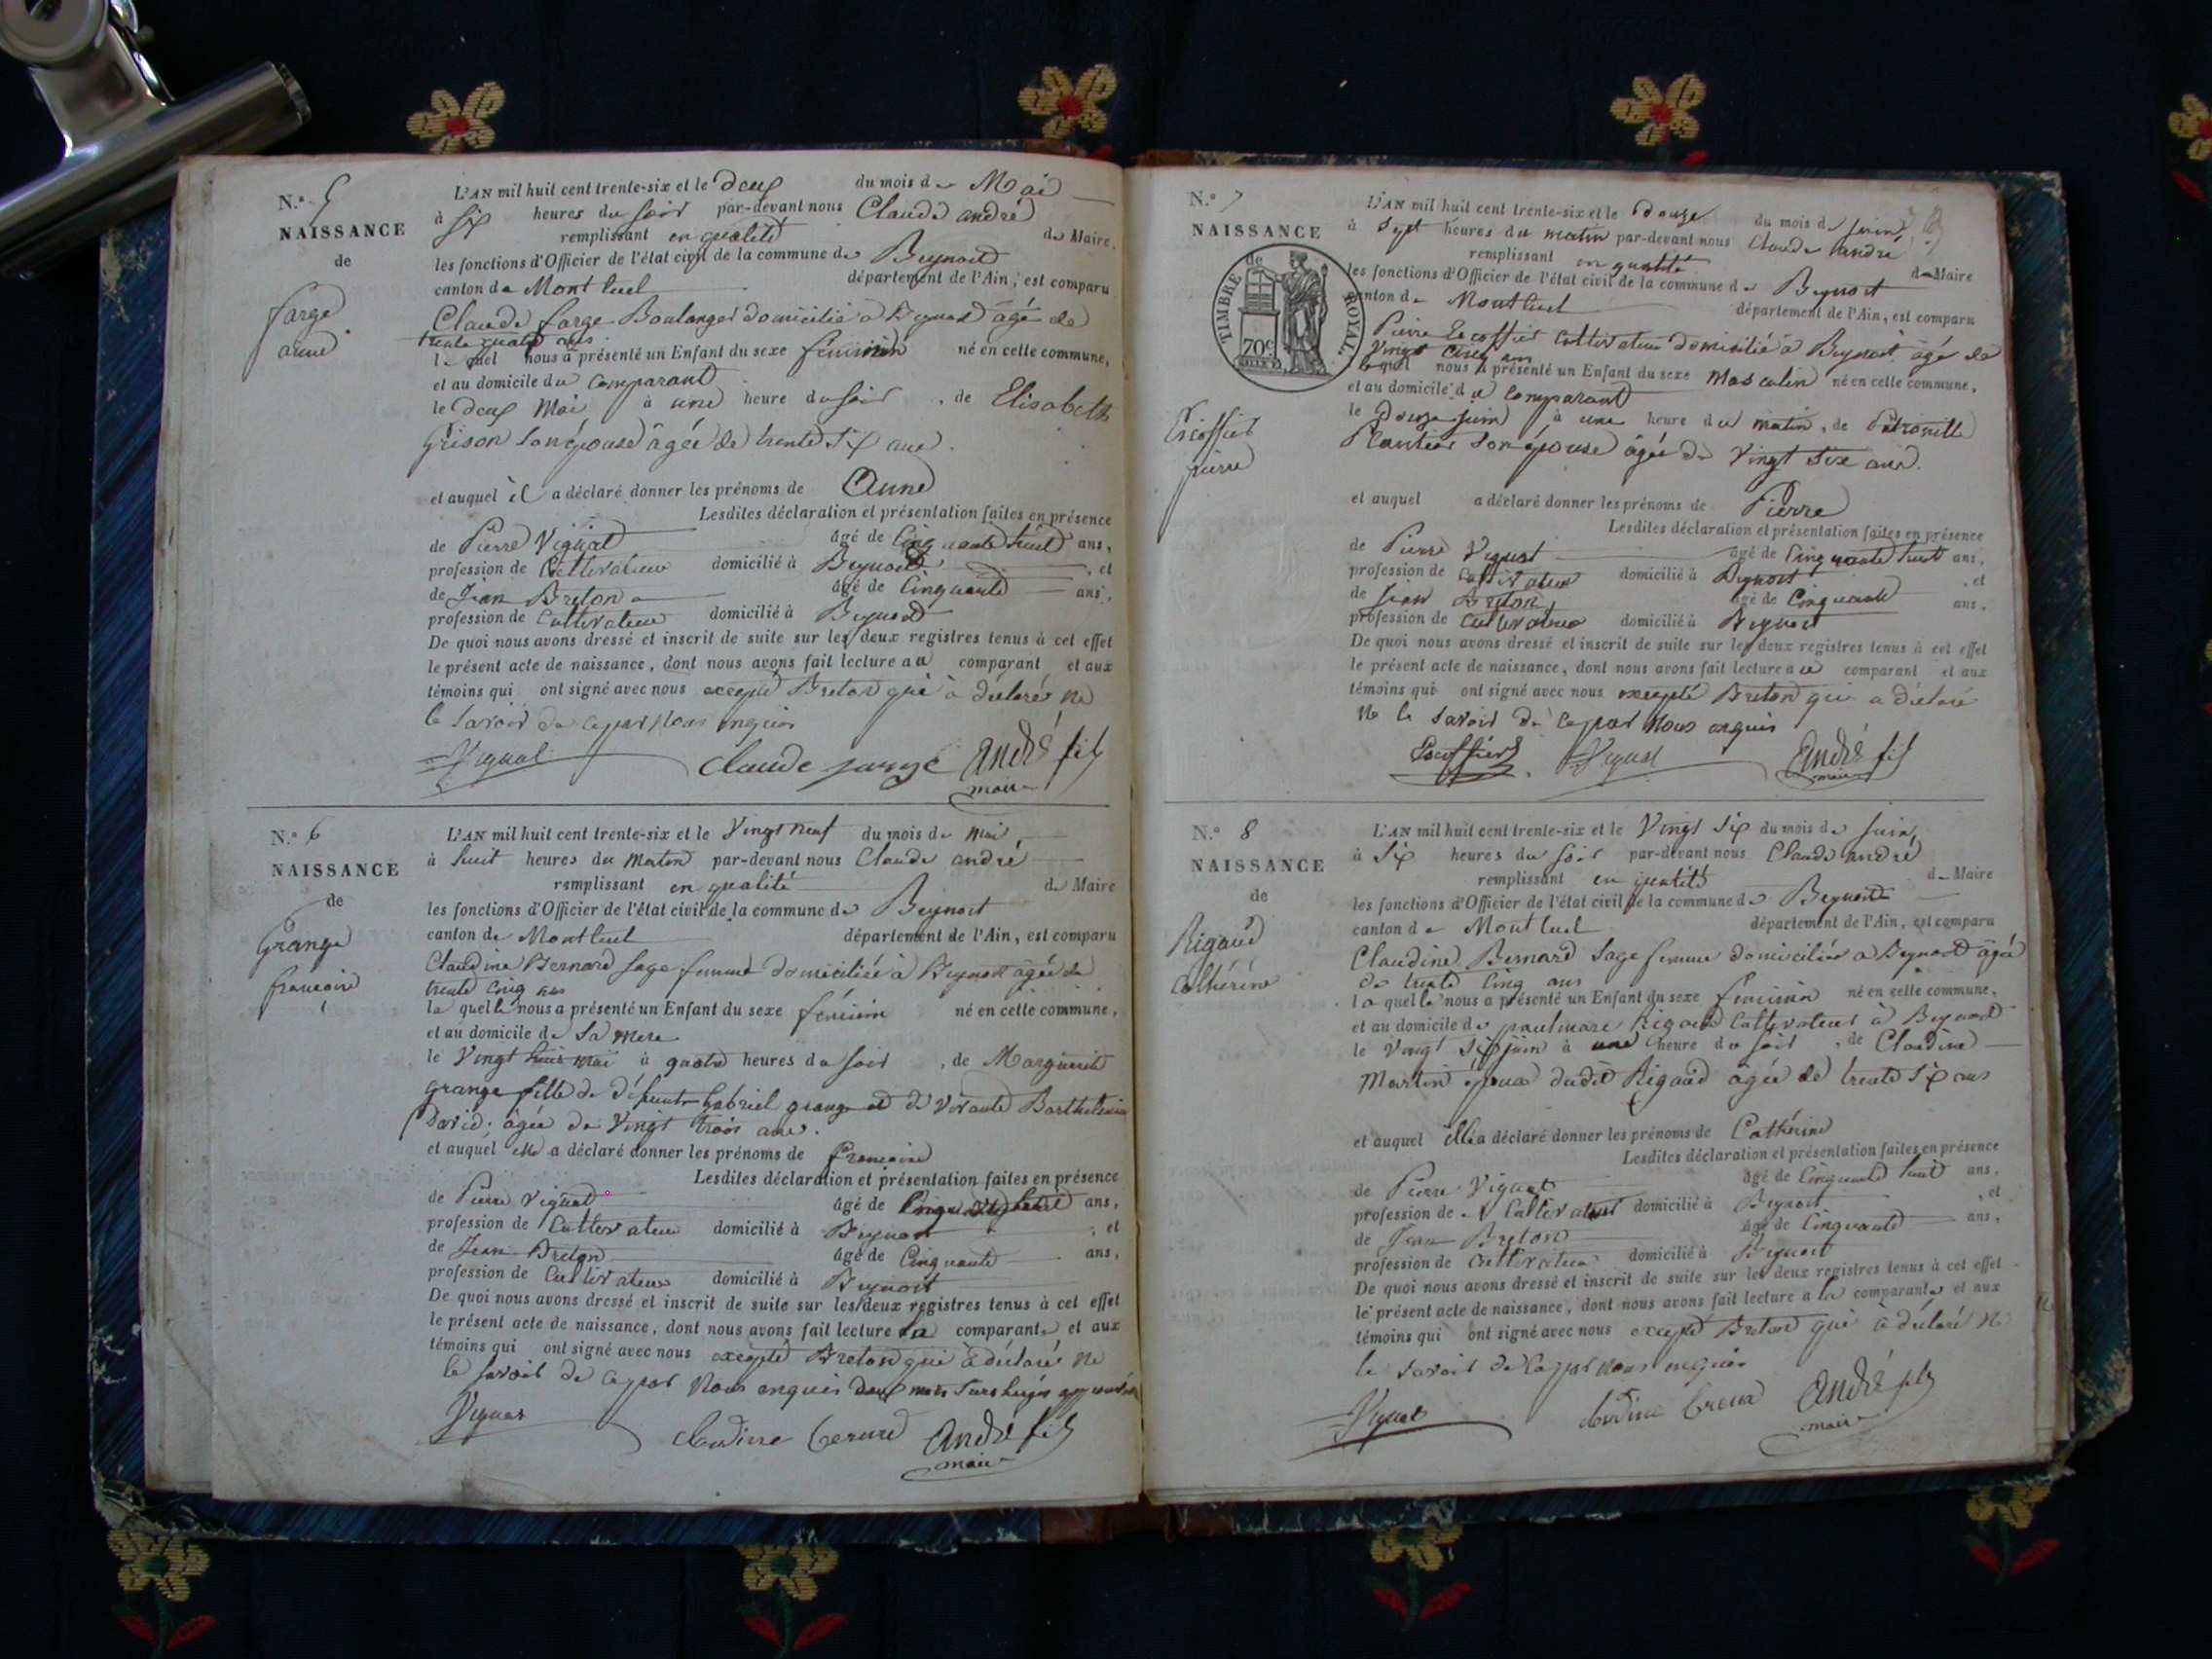 N.° 5
NAISSANCE
de
farge
anne
L'AN mil huit cent trente-six et le deux du mois de Mai
à six heures du soir par-devant nous Claude andré
remplissant en qualité de Maire
les fonctions d'Officier de l'état civil de la commune de Beynost
canton de Montluel département de l'Ain, est comparu
Claude farge Boulanger domicilié à Beynost âgé de
trente quatre ans
lequel nous a présenté un Enfant du sexe féminin né en cette commune,
et au domicile du comparant
le deux Mai à une heure du soir, de Elisabeth
Grison son épouse âgée de trente six ans.
et auquel il a déclaré donner les prénoms de Anne
Lesdites déclaration et présentation faites en présence
de Pierre Vignat âgé de Cinquante huit ans,
profession de Cultivateur domicilié à Beynost, et
de Jean Breton âgé de Cinquante ans,
profession de Cultivateur domicilié à Beynost
De quoi nous avons dressé et inscrit de suite sur les deux registres tenus à cet effet
le présent acte de naissance, dont nous avons fait lecture au comparant et aux
témoins qui ont signé avec nous excepté Breton qui a déclaré ne
le savoir de ce par nous enquis
Vignat Claude farge André fils
maire
N.° 6
NAISSANCE
de
Grange
francoise
L'AN mil huit cent trente-six et le Vingt neuf du mois de mai
à huit heures du matin par-devant nous Claude andré
remplissant en qualité de Maire
les fonctions d'Officier de l'état civil de la commune de Beynost
canton de Montluel département de l'Ain, est comparu
Claudine Bernard sage femme domiciliée à Beynost âgée de
trente cinq ans
laquelle nous a présenté un Enfant du sexe féminin né en cette commune,
et au domicile de sa mere
le Vingt huit mai à quatre heures du soir, de Marguerite
grange fille de défunt Gabriel grange et de vivante Barthelemie
David. âgée de Vingt trois ans.
et auquel elle a déclaré donner les prénoms de francoise
Lesdites déclaration et présentation faites en présence
de Pierre Vignat âgé de Cinquante huit ans,
profession de Cultivateur domicilié à Beynost, et
de Jean Breton âgé de Cinquante ans,
profession de Cultivateur domicilié à Beynost
De quoi nous avons dressé et inscrit de suite sur les deux registres tenus à cet effet
le présent acte de naissance, dont nous avons fait lecture à la comparante et aux
témoins qui ont signé avec nous excepté Breton qui a déclaré ne
le savoir de ce par nous enquis deux mots surchargés approuvés
Vignat Claudine bernard André fils
maire
N.° 7
NAISSANCE
de
TIMBRE ROYAL.
70c
Escoffier
pierre
L'AN mil huit cent trente-six et le douze du mois de juin
à sept heures du matin par-devant nous Claude andré
remplissant en qualité de Maire
les fonctions d'Officier de l'état civil de la commune de Beynost
canton de Montluel département de l'Ain, est comparu
Pierre Escoffier Cultivateur domicilié à Beynost âgé de
Vingt cinq ans
lequel nous a présenté un Enfant du sexe Masculin né en cette commune,
et au domicile du comparant
le Douze juin à une heure du matin, de Pétronille
Plantier son épouse âgée de Vingt six ans.
et auquel a déclaré donner les prénoms de Pierre
Lesdites déclaration et présentation faites en présence
de Pierre Vignat âgé de Cinquante huit ans,
profession de Cultivateur domicilié à Beynost, et
de Jean Breton, âgé de Cinquante ans,
profession de Cultivateur domicilié à Beynost
De quoi nous avons dressé et inscrit de suite sur les deux registres tenus à cet effet
le présent acte de naissance, dont nous avons fait lecture au comparant et aux
témoins qui ont signé avec nous excepté Breton qui a déclaré
ne le savoir de ce par nous enquis
Escoffier Vignat André fils
maire
N.° 8
NAISSANCE
de
Rigaud
Cathérine
L'AN mil huit cent trente-six et le Vingt six du mois de juin
à six heures du soir par-devant nous Claude andré
remplissant en qualité de Maire
les fonctions d'Officier de l'état civil de la commune de Beynost
canton de Montluel département de l'Ain, est comparu
Claudine Bernard sage femme domiciliée a Beynost âgée
de trente cinq ans
laquelle nous a présenté un Enfant du sexe féminin né en cette commune,
et au domicile de Rigaud Cultivateur à Beynost
le Vingt six juin à une heure du soir, de Claudine
Martin épouse dudit Rigaud âgée de trente six ans
et auquel elle a déclaré donner les prénoms de Cathérine
Lesdites déclaration et présentation faites en présence
de Pierre Vignat âgé de Cinquante huit ans,
profession de Cultivateur domicilié à Beynost, et
de Jean Breton âgé de Cinquante ans,
profession de Cultivateur domicilié à Beynost
De quoi nous avons dressé et inscrit de suite sur les deux registres tenus à cet effet
le présent acte de naissance, dont nous avons fait lecture a la comparante et aux
témoins qui ont signé avec nous excepté Breton qui a déclaré ne
le savoir de ce par nous enquis
Vignat Claudine André fils
maire